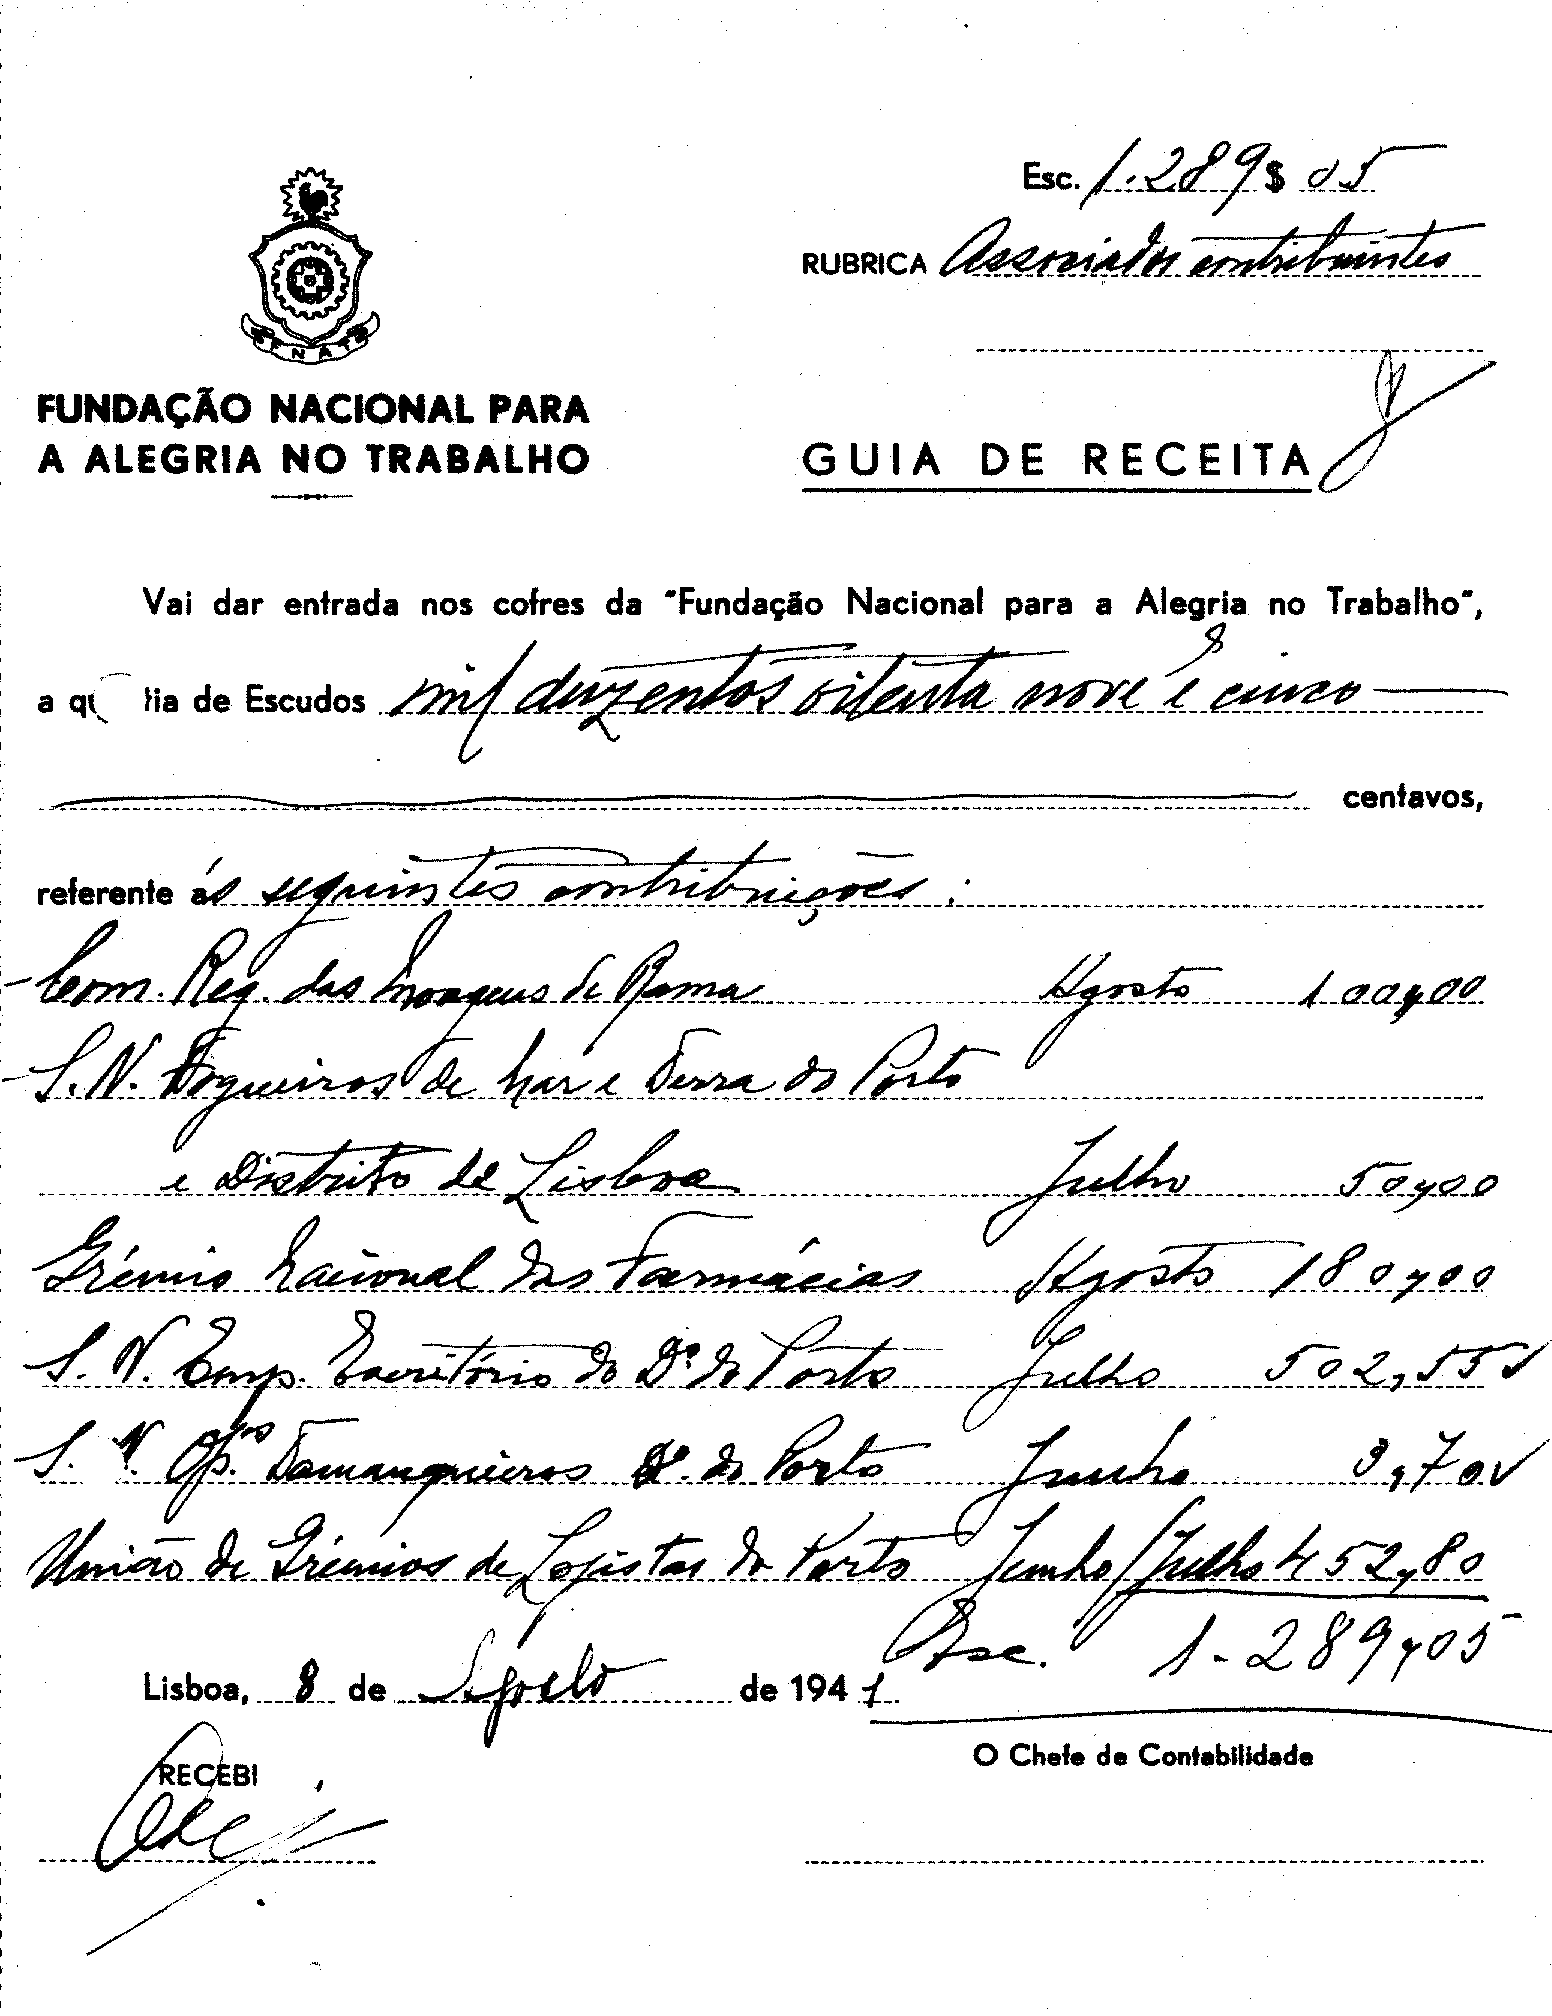 Esc. 1.289$05
RUBRICA Associados contribuintes
FNAT
FUNDAÇÃO NACIONAL PARA
A ALEGRIA NO TRABALHO
GUIA DE RECEITA
Vai dar entrada nos cofres da "Fundação Nacional para a Alegria no Trabalho",
a qu tia de Escudos mil duzentos oitenta nove e cinco
centavos,
referente ás seguintes contribuições:
Com. Reg. das Moagens de Rama Agosto 100,00
S. N. Fogueiros de Mar e Terra do Porto
e Distrito de Lisboa Julho 50,00
Grémio Nacional das Farmácias Agosto 180,00
S. N. Emp. Escritório do D.º do Porto Julho 502,55
S. N. Op.os Tamanqueiros D.º do Porto Junho 3,70
União de Grémios de Lojistas do Porto Junho/Julho 452,80
Esc. 1.289,05
Lisboa, 8 de Agosto de 1941
O Chefe de Contabilidade
RECEBI